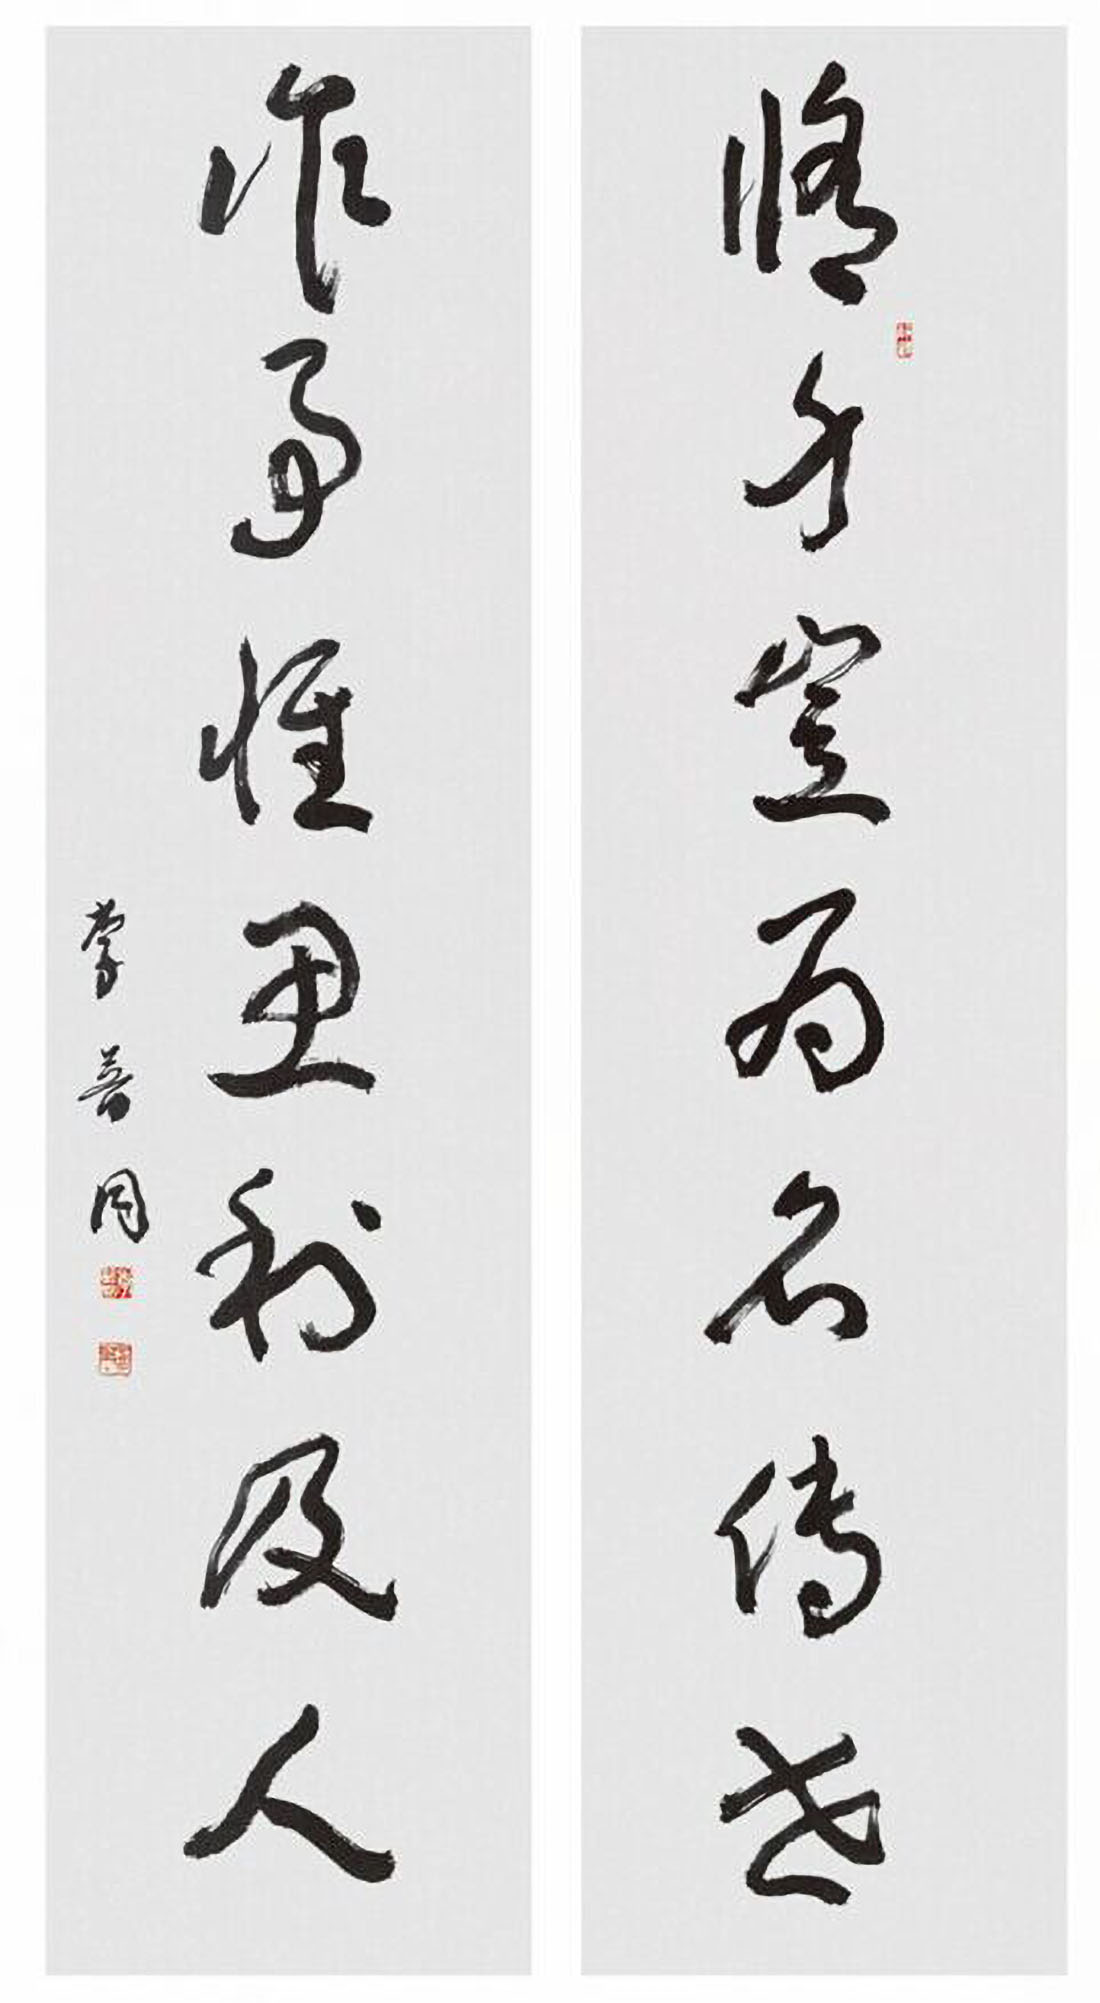 修身岂为名传世
作事惟思利及人
李普同